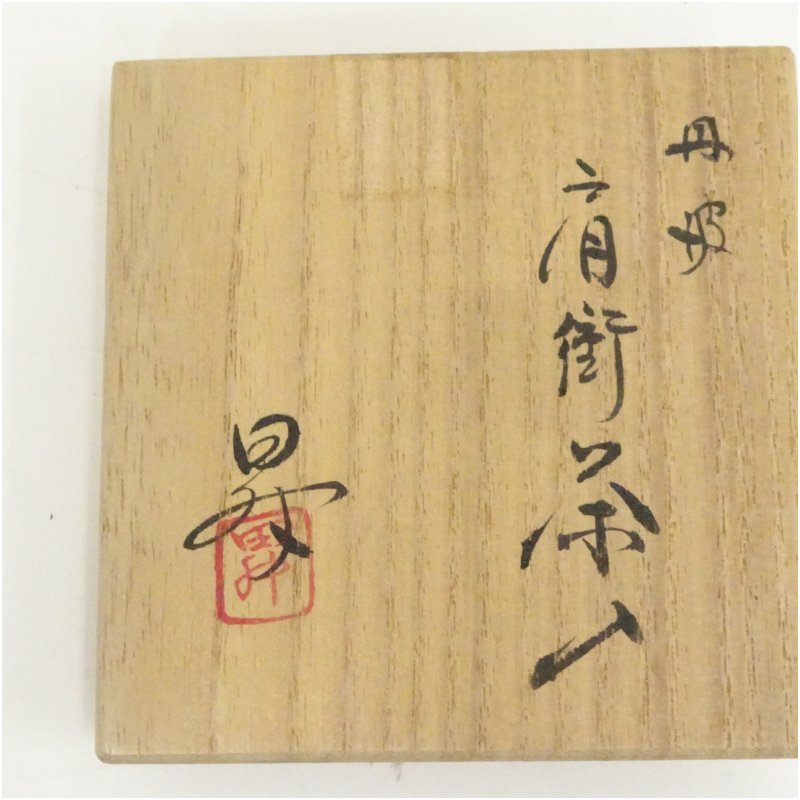 丹波
肩衝茶入
昇
昇